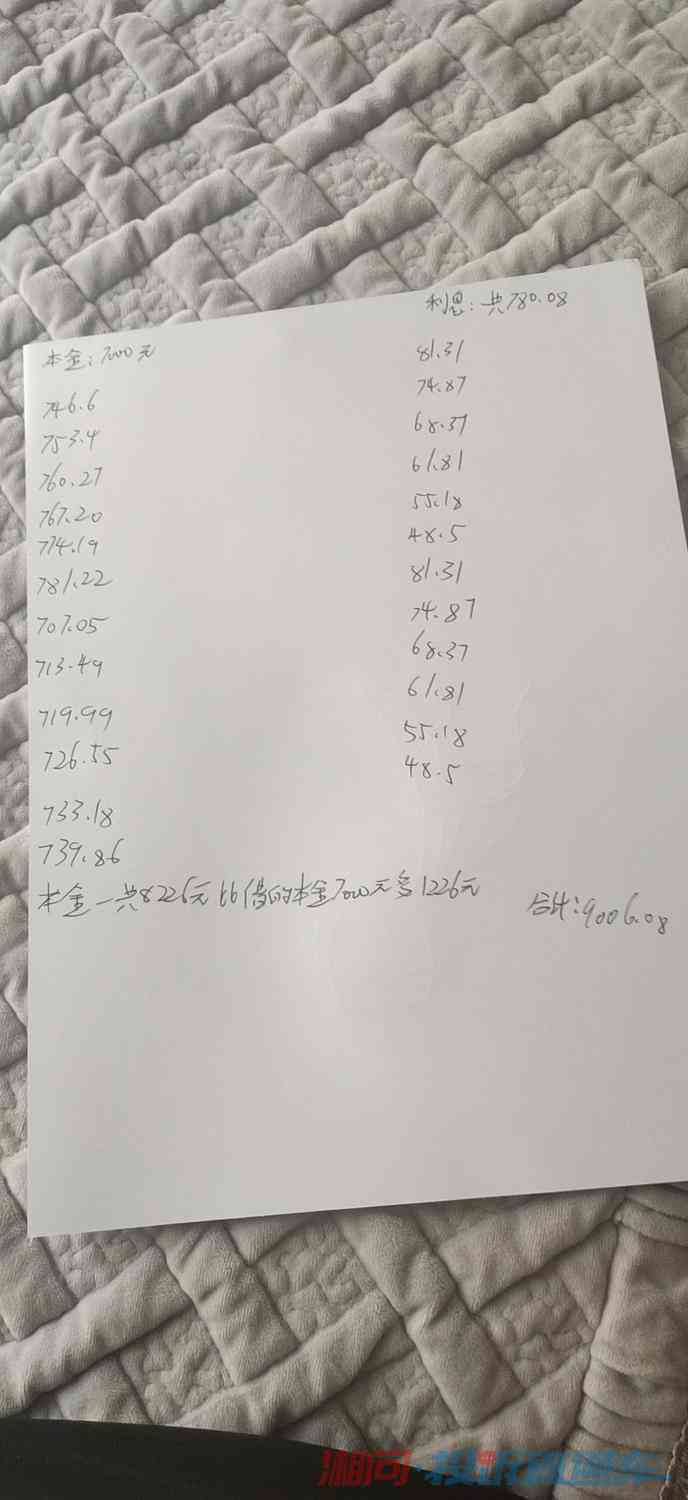 利息：共780.08
本金：7000元
81.31
74.87
746.6
68.37
753.4
61.81
760.27
55.18
767.20
48.5
774.19
81.31
781.22
74.87
707.05
68.37
713.49
61.81
719.99
55.18
726.55
48.5
733.18
739.86
本金一共8226元比借的本金7000元多1226元
合计：9006.08
湘问·投诉直通车